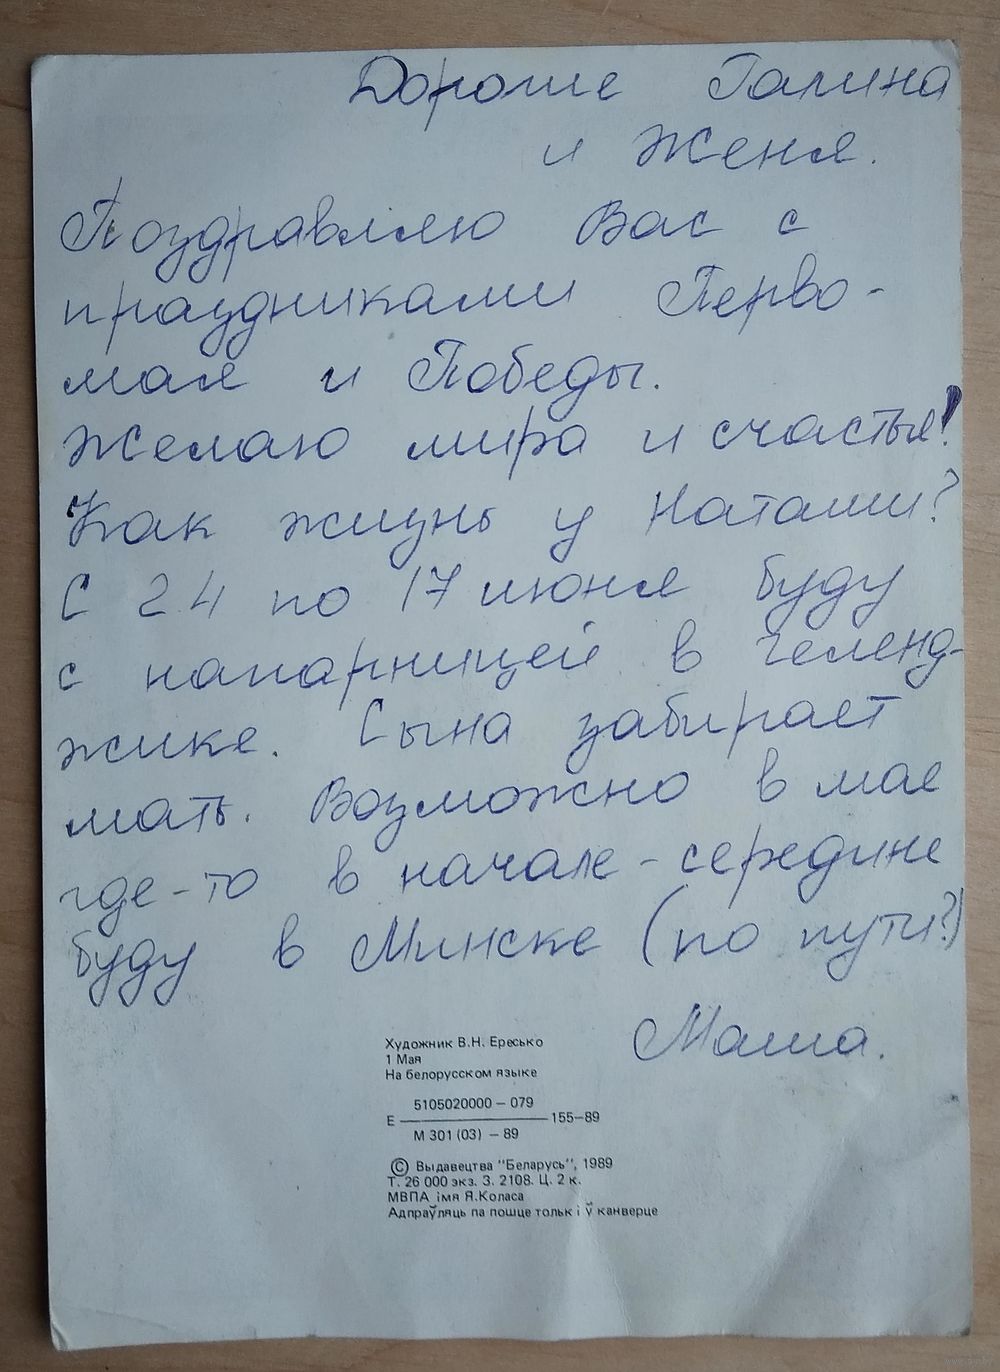 Дорогие Галина
и Женя.
Поздравляю Вас с
праздниками Перво-
мая и Победы.
Желаю мира и счастья!
Как жизнь у Наташи?
С 24 по 17 июня буду
с напарницей в Геленд-
жике. Сына забирает
мать. Возможно в мае
где-то в начале-середине
буду в Минске (по пути?)
Маша.
Художник В.Н. Ересько
1 Мая
На белорусском языке
5105020000 – 079
Е 155–89
М 301 (03) – 89
© Выдавецтва "Беларусь", 1989
Т. 26 000 экз. З. 2108. Ц. 2 к.
МВПА імя Я.Коласа
Адпраўляць па пошце толькі ў канверце